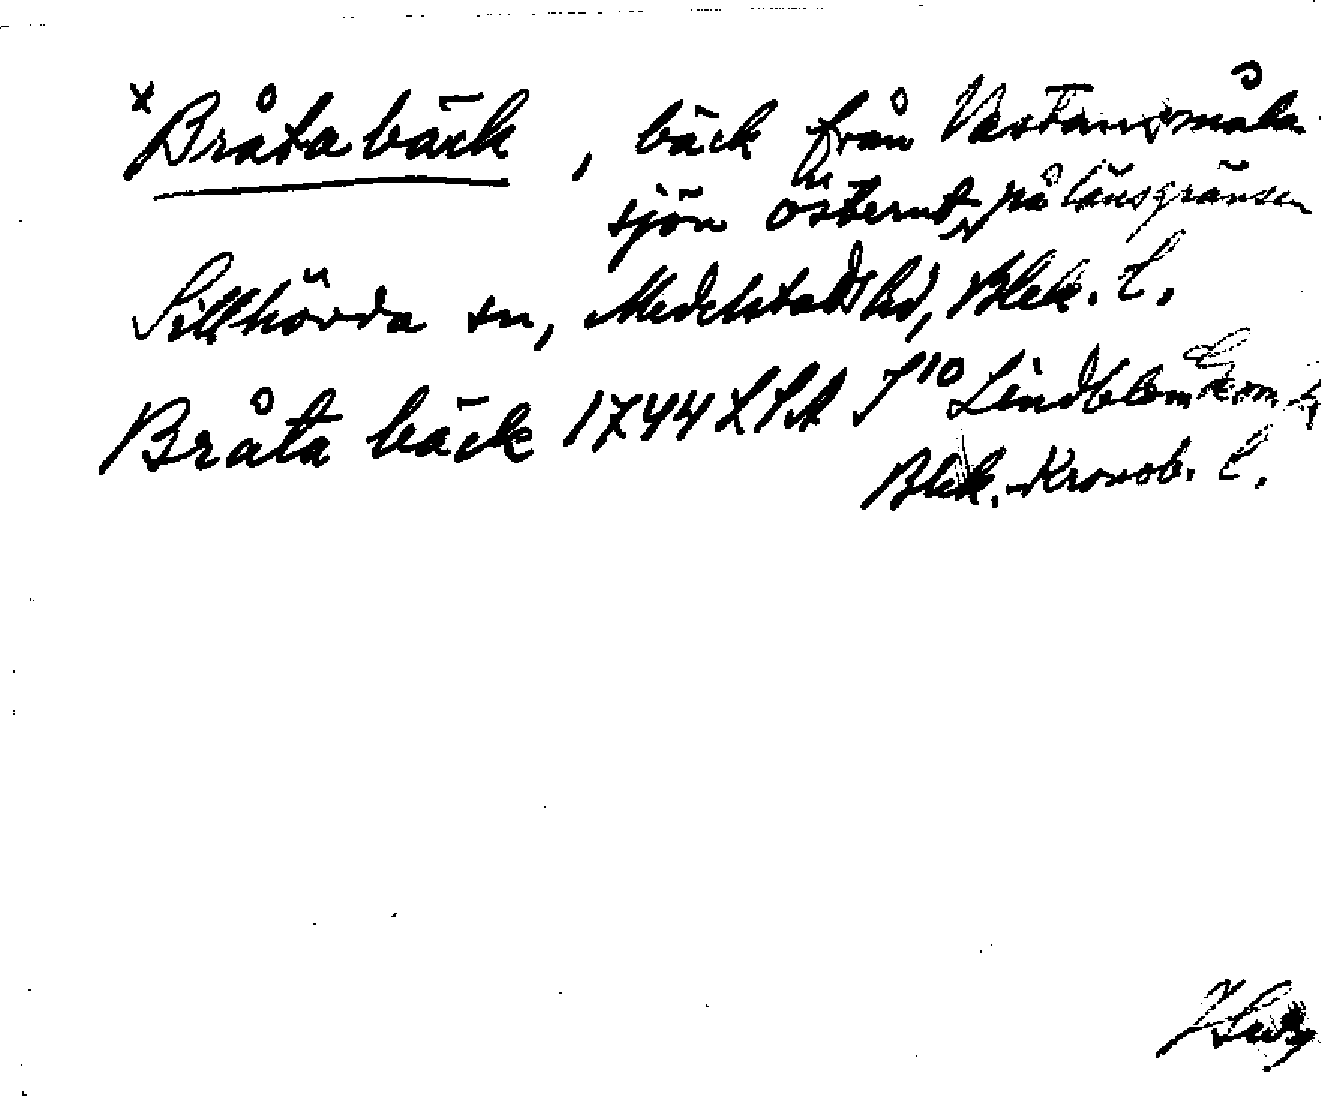 ˣBråtabäck, bäck från Västansmåla
sjön österut, på länsgränsen
Sillhövda sn, Medelstads hd, Blek. l.
Bråta bäck 1744 LSA S¹⁰ Lindblom
Blek.-Kronob. l.